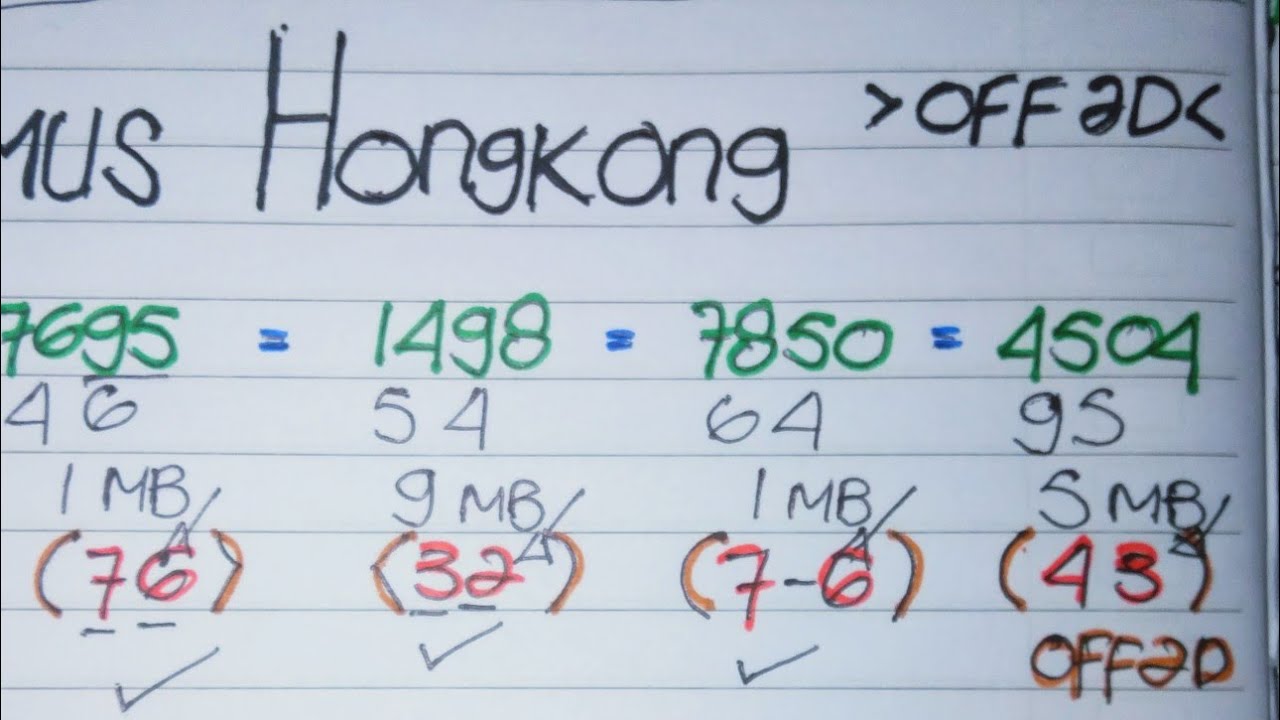 MUS Hongkong >OFF 2D<
7695 = 1498 = 7850 = 4504
46 54 64 95
1 MB/A 9 MB/A 1 MB/A 5 MB/A
(76) (32) (7-6) (43)
OFF 2D